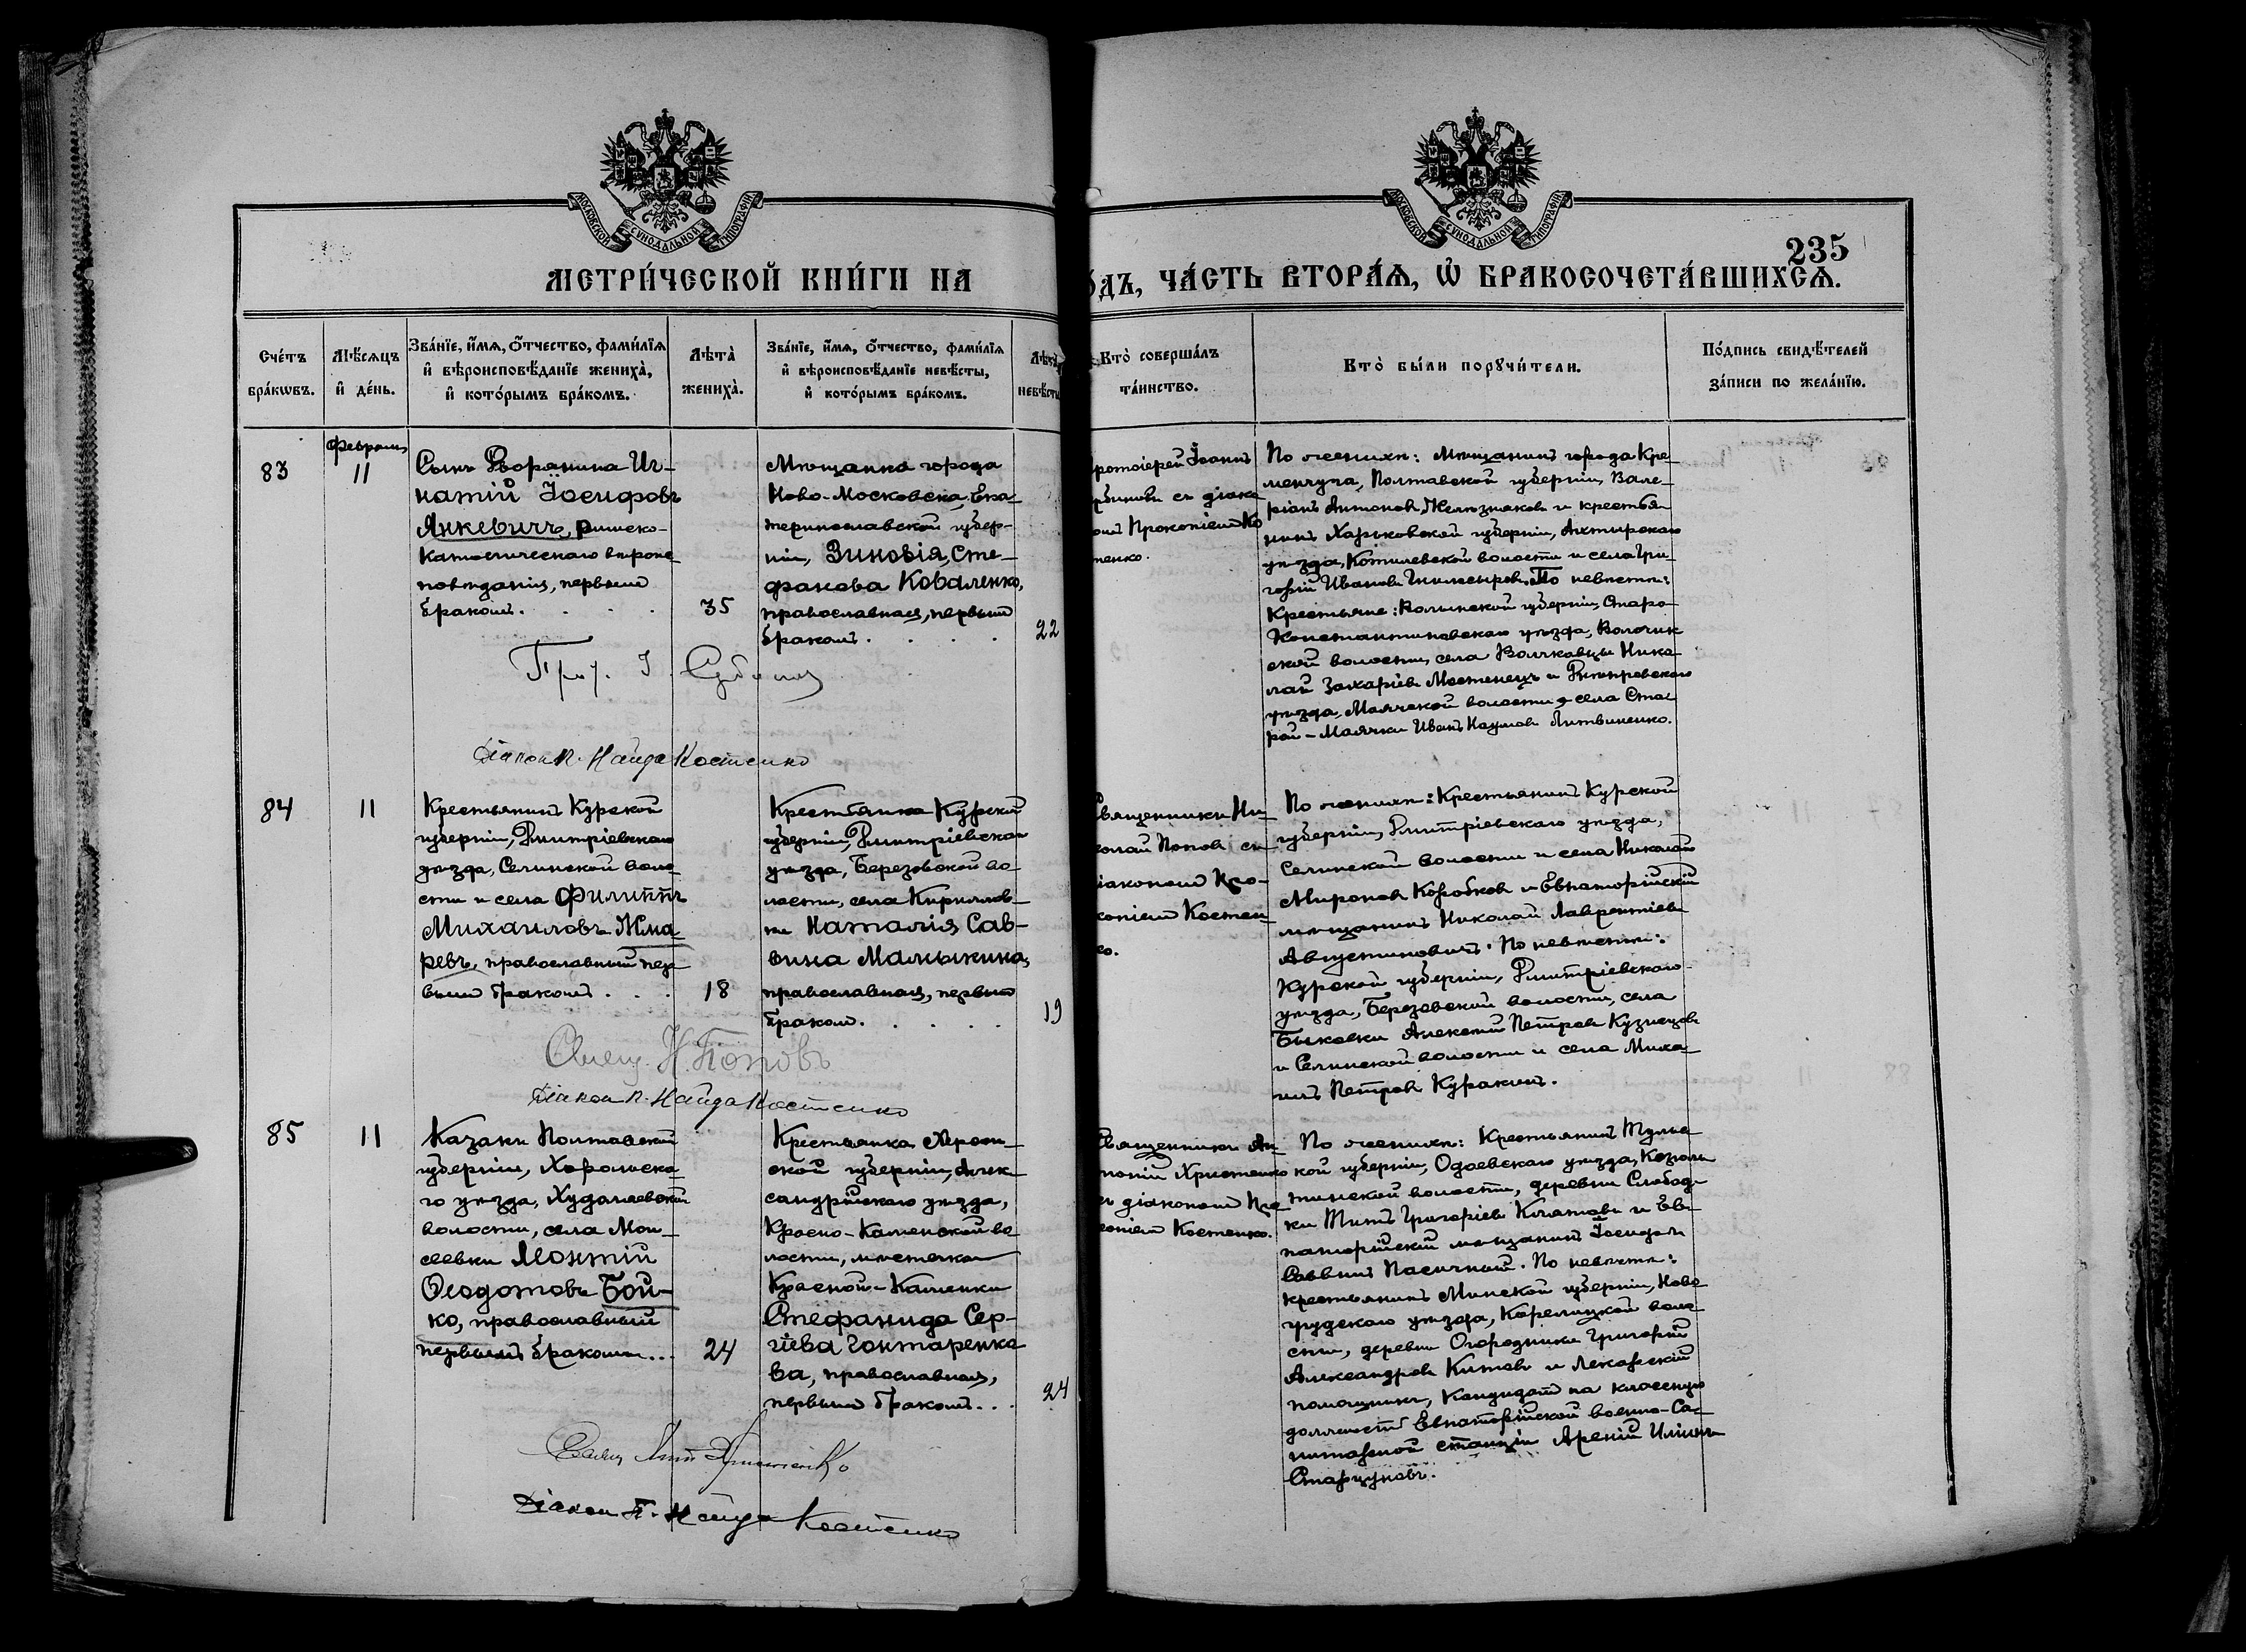 МОСКОВСКОЙ СУНОДАЛЬНОЙ ТИПОГРАФІИ
МОСКОВСКОЙ СУНОДАЛЬНОЙ ТИПОГРАФІИ
235
МЕТРИ́ЧЕСКОЙ КНИ́ГИ НА
О́ДЪ, ЧА́СТЬ ВТОРА́Ѧ, Ѡ҆ БРАКОСОЧЕТА́ВШИХСѦ.
Сче́тъ
бра́кѡвъ.
Мѣ́сѧцъ
и҆ де́нь.
Зва́нїе, и҆́мѧ, ѻ҆́тчество, фами́лїѧ
и҆ вѣроисповѣ́данїе жениха̀,
и҆ кото́рымъ бра́комъ.
Лѣта̀
жениха̀.
Зва́нїе, и҆́мѧ, ѻ҆́тчество, фами́лїѧ
и҆ вѣроисповѣ́данїе невѣ́сты,
и҆ кото́рымъ бра́комъ.
Лѣта̀
невѣ́сты
Кто̀ соверша́лъ
та́инство.
Кто̀ бы́ли порꙋчи́тели.
По́дпись свидѣ́телей
за́писи по жела́нїю.
83
Февраль
11
Сынъ Дворянина Иг-
натій Іосифовъ
Янкевичъ, римско-
католическаго вѣроис
повѣданія, первымъ
бракомъ. . . .
35
Мѣщанка города
Ново-Московска, Ека-
теринославской губер-
ніи, Зиновія, Сте-
фанова Коваленко,
православная, первымъ
бракомъ. . . .
22
ротоіерей Іоаннъ
рбиновъ съ діако
омъ Прокопіемъ Ко
тенко.
По женихѣ: Мѣщанинъ города Кре-
менчуга, Полтавской губерніи, Вале-
ріанъ Антоновъ Желѣзняковъ и крестья
нинъ Харьковской губерніи, Ахтырскаго
уѣзда, Котелевской волости и села Гри-
горій Ивановъ. По невѣстѣ:
Крестьяне: Волынской губерніи, Старо-
Константиновскаго уѣзда, Волочис
ской волости, села Волчковцы Нико-
лай Захаріевъ Мостенецъ и Днѣпровскаго
уѣзда, Маячской волости, села Ста-
рой-Маячки Иванъ Наумовъ Литвиненко.
Прот. І.
Діаконъ П. Найда Костенко
84
11
Крестьянинъ Курской
губерніи, Дмитріевскаго
уѣзда, Селинской воло
сти и села Филиппъ
Михаиловъ Жма-
ревъ, православный пер
вымъ бракомъ . . .
18
Крестьянка Курской
губерніи, Дмитріевскаго
уѣзда, Березовской во-
лости, села Кириллов-
ки Наталія Сав-
вина Малыкина,
православная, первымъ
бракомъ. . . . .
19
вященникъ Ни-
колай Поповъ съ
іакономъ Про-
копіемъ Костен-
ко.
По женихѣ: Крестьянинъ Курской
губерніи, Дмитріевскаго уѣзда,
Селинской волости и села Николай
Мироновъ Коробковъ и Евпаторійскій
мѣщанинъ Николай Лаврентіевъ
Августиновичъ. По невѣстѣ:
Курской губерніи, Дмитріевскаго
уѣзда, Березовской волости, села
Быковки Алексѣй Петровъ Кузнецовъ
и Селинской волости и села Миха-
илъ Петровъ Куракинъ.
Свящ. Н. Поповъ
Діаконъ П. Найда Костенко
85
11
Казакъ Полтавской
губерніи, Хорольска-
го уѣзда, Худолѣевской
волости, села Мои-
сеевки Леонтій
Ѳеодотовъ Бой-
ко, православный
первымъ бракомъ...
24
Крестьянка Херсон-
ской губерніи, Алек-
сандрійскаго уѣзда,
Красно-Каменской во
лости, мѣстечка
Красной-Каменки
Стефанида Сер-
гіева Гонтаренко
ва, православная,
первымъ бракомъ...
24
Священникъ Ан-
тоній Христенко
съ діакономъ Про
копіемъ Костенко.
По женихѣ: Крестьянинъ Туль-
кой губерніи, Одоевскаго уѣзда,
волости, деревни Слобод-
ки Титъ Григорьевъ и Ев-
паторійскій мѣщанинъ
Саввинъ Пасичный. По невѣстѣ:
крестьянинъ Минской губерніи, Ново-
грудскаго уѣзда, Корелицкой воло
сти, деревни Огородники Григорій
Александровъ Китовъ и Лекарскій
помощникъ, Кандидатъ на классную
должность Евпаторійской военно-Са-
нитарной станціи
Старцуновъ.
Свящ. Ант. Христенко
Діаконъ П. Найда Костенко